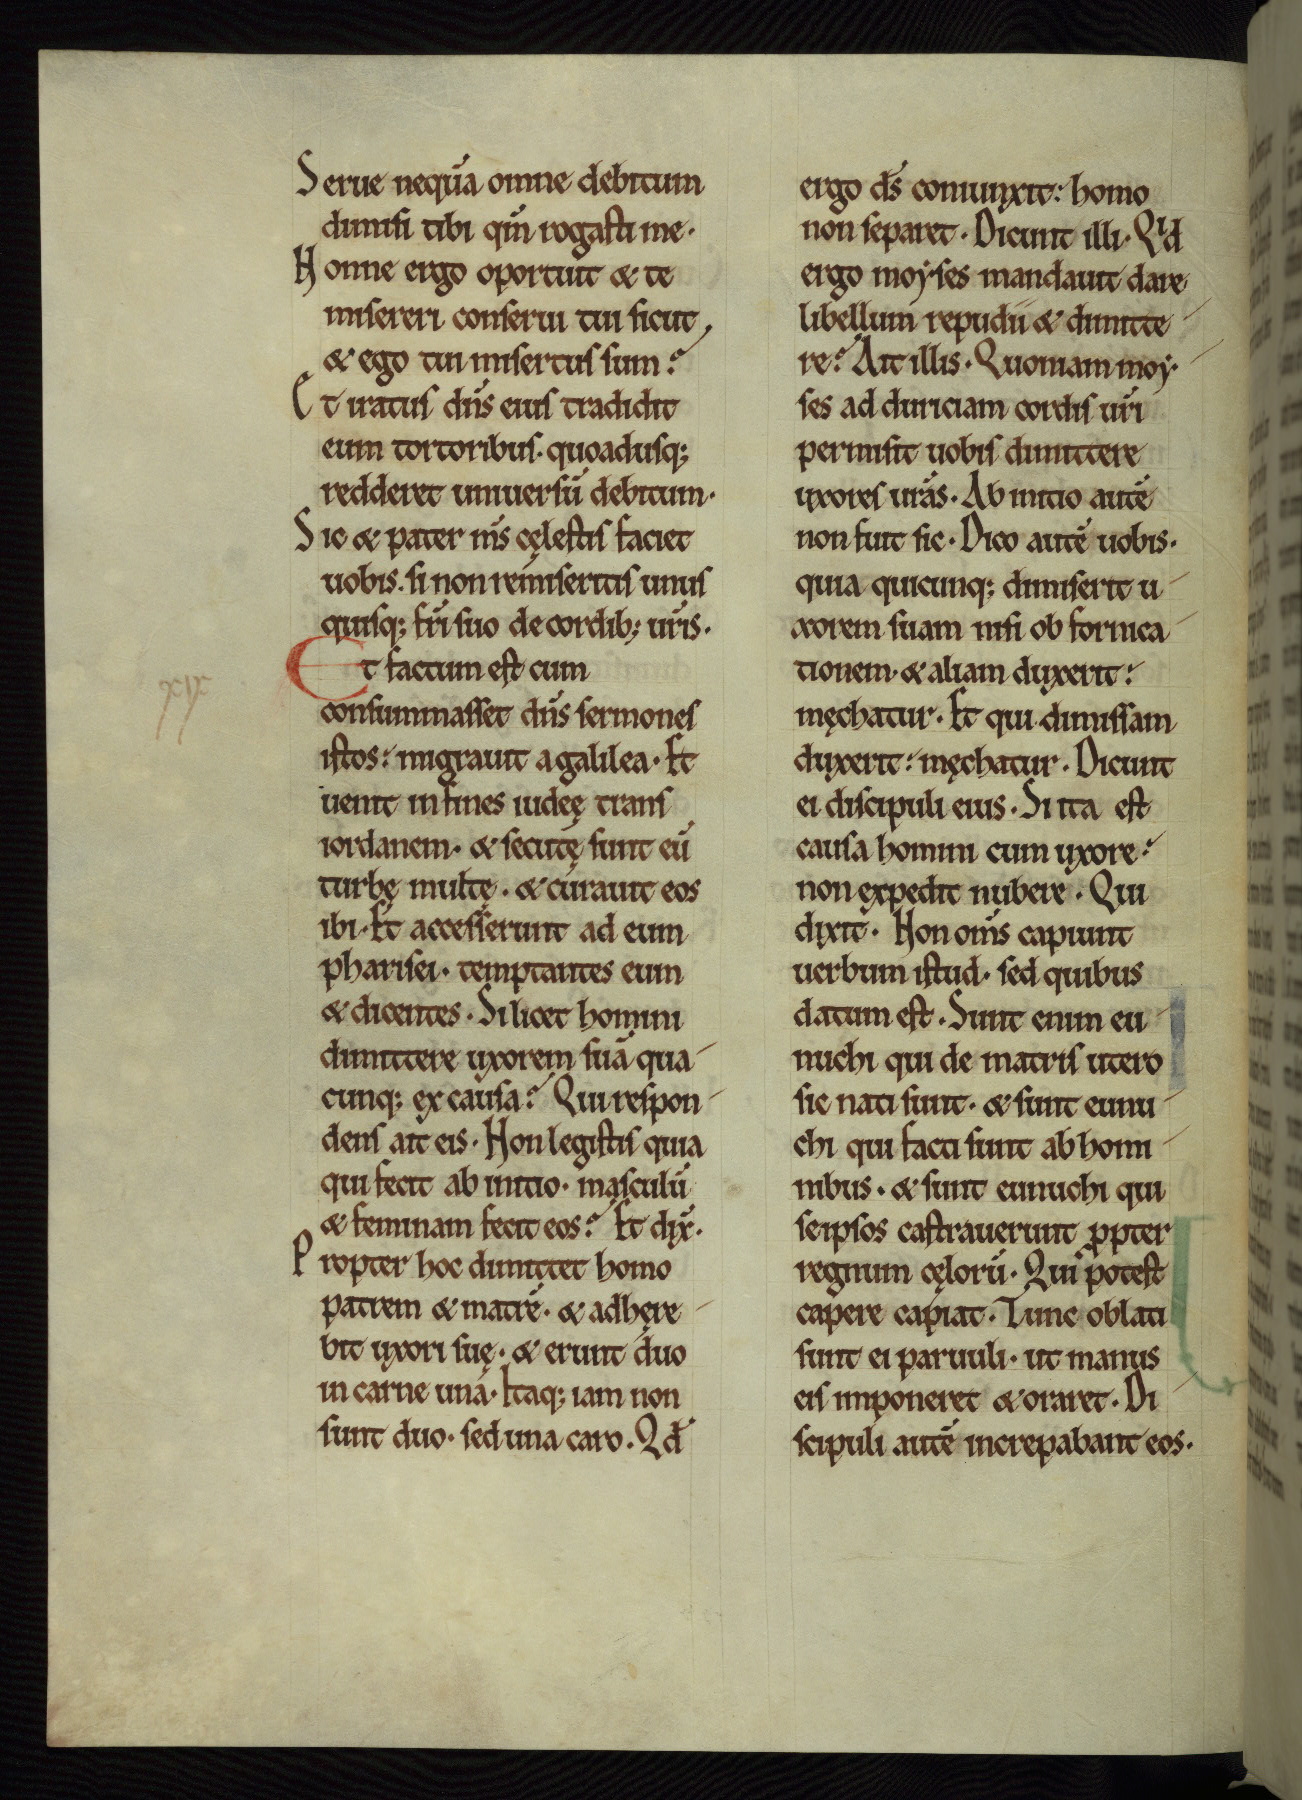 Serue neqūa omne debitum
dimisi tibi qm̄ rogasti me·
Nonne ergo oportuit & te
misereri conserui tui sicut
& ego tui misertus sum?
Et iratus dn̄s eius tradidit
eum tortoribus· quoadusq;
redderet uniuersū debitum·
Sic & pater ms̄ cęlestis faciet
uobis· si non remiseritis unus
quisq; fri̅ suo de cordib; uris̅·
Et factum est cum
xix
consummasset dn̄s sermones
istos: migrauit a galilea· Et
uenit in fines iudeę trans
iordanem· & secutę sunt eū
turbę multę· & curauit eos
ibi· Et accesserunt ad eum
pharisei· temptantes eum
& dicentes· Si licet homini
dimittere uxorem suā qua
cunq; ex causa? Qui respon
dens ait eis· Non legistis quia
qui fecit ab initio· masculū
& feminam fecit eos? Et dix̄·
Propter hoc dimittet homo
patrem & matrē· & adhęre
bit uxori suę· & erunt duo
in carne una· Itaq; iam non
sunt duo· sed una caro· Qd̄
ergo ds̄ coniunxit: homo
non separet· Dicunt illi· Qid
ergo moyses mandauit dare
libellum repudii & dimitte
re? Ait illis· Quoniam moy
ses ad duriciam cordis uri̅
permisit uobis dimittere
uxores uras̅· Ab initio autē
non fuit sic· Dico autē uobis·
quia quicunq; dimiserit u
xorem suam nisi ob fornica
tionem· & aliam duxerit:
męchatur· Et qui dimissam
duxerit: męchatur· Dicunt
ei discipuli eius· Si ita est
causa homini cum uxore:
non expedit nubere· Qui
dixit· Non oms̄ capiunt
uerbum istud· sed quibus
datum est· Sunt enim eu
nuchi qui de matris utero
sic nati sunt· & sunt eunu
chi qui facti sunt ab homi
nibus· & sunt eunuchi qui
seipsos castrauerunt ꝓpter
regnum cęlorū· Qui potest
capere capiat· Tunc oblati
sunt ei paruuli· ut manus
eis imponeret & oraret· Di
scipuli autē increpabant eos·